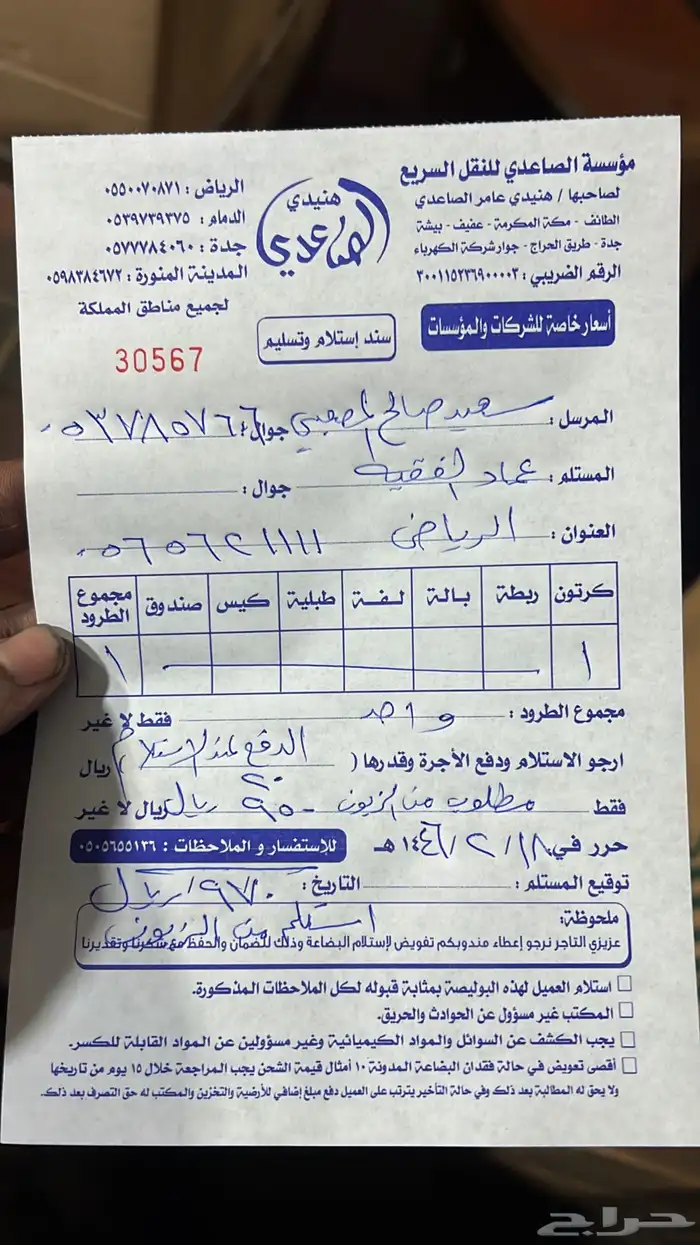 مؤسسة الصاعدي للنقل السريع
لصاحبها / هنيدي عامر الصاعدي
الطائف - مكة المكرمة - عفيف - بيشة
جدة - طريق الحراج - جوار شركة الكهرباء
الرقم الضريبي : ٣٠٠١١٥٢٣٦٩٠٠٠٠٣
أسعار خاصة للشركات والمؤسسات
هنيدي
الصاعدي
سند إستلام وتسليم
الرياض : ٠٥٥٠٠٧٠٨٧١
الدمام : ٠٥٣٩٧٣٩٣٧٥
جدة : ٠٥٧٧٧٨٤٠٦٠
المدينة المنورة : ٠٥٩٨٣٨٤٦٧٢
لجميع مناطق المملكة
30567
المرسل : سعيد صالح جوال : ٠٥٣٧٨٥٧٦٦
المستلم : عماد الفقيه جوال :
العنوان : الرياض ٠٥٦٥٦٢١١١١
كرتون ربطة بالة لفة طبلية كيس صندوق مجموع الطرود
١ ١
مجموع الطرود : واحد فقط لا غير
ارجو الاستلام ودفع الأجرة وقدرها ( الدفع عند الاستلام ) ريال
٢٠
فقط مطلوب من الزبون ٩٥٠ ريال ريال لا غير
حرر في ١٨ / ٢ / ١٤٤٦ هـ
للإستفسار و الملاحظات : ٠٥٠٥٦٥٥١٣٦
توقيع المستلم : التاريخ : ٩٧٠ / ريال
استلم من الزبون
ملحوظة:
عزيزي التاجر نرجو إعطاء مندوبكم تفويض لإستلام البضاعة وذلك للضمان والحفظ مع شكرنا وتقديرنا
استلام العميل لهذه البوليصة بمثابة قبوله لكل الملاحظات المذكورة.
المكتب غير مسؤول عن الحوادث والحريق.
يجب الكشف عن السوائل والمواد الكيميائية وغير مسؤولين عن المواد القابلة للكسر.
أقصى تعويض في حالة فقدان البضاعة المدونة ١٠ أمثال قيمة الشحن يجب المراجعة خلال ١٥ يوم من تاريخها
ولا يحق له المطالبة بعد ذلك وفي حالة التأخير يترتب على العميل دفع مبلغ إضافي للأرضية والتخزين والمكتب له حق التصرف بعد ذلك.
حراج